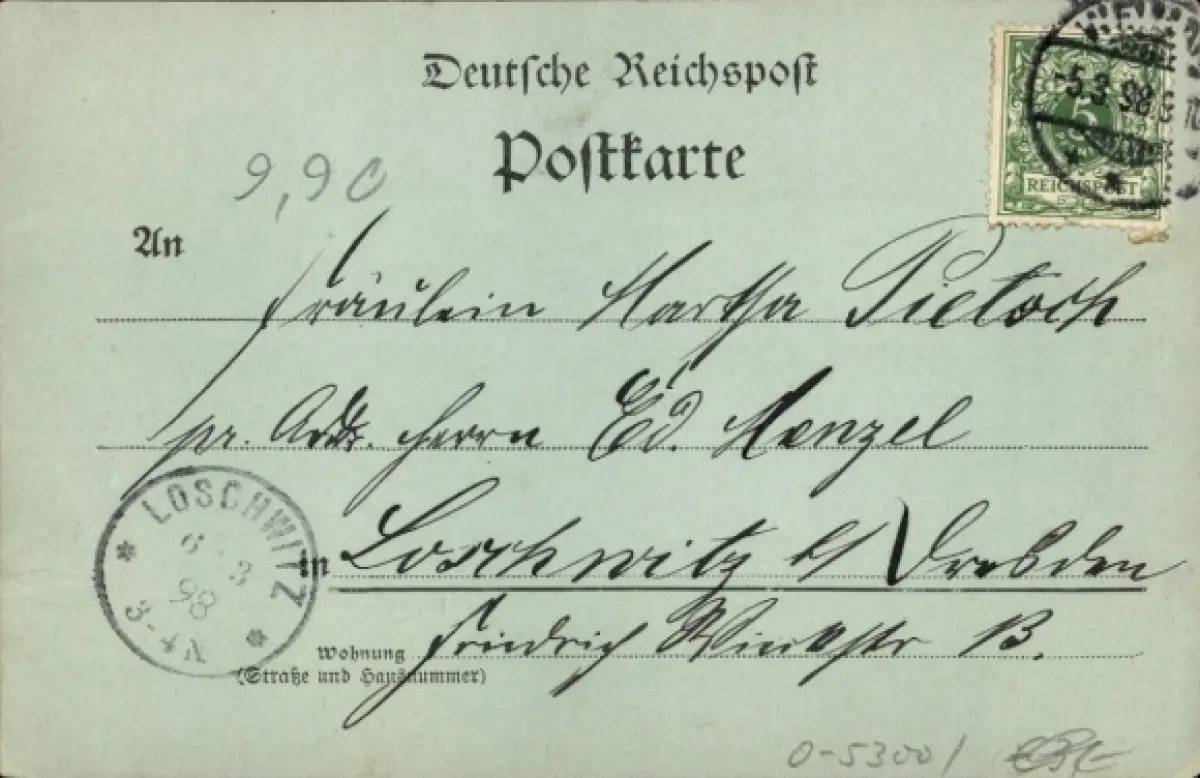 Deutsche Reichspost
Postkarte
5
REICHSPOST
-5.3 98
9,90
An
Fräulein Martha Pietzsch
pr. Adr. Herrn Ed. Menzel
in Loschwitz b/ Dresden
Wohnung Friedrich Wieckstr 13.
(Straße und Hausnummer)
LOSCHWITZ
6 3
98
3-4 N
0-5300/